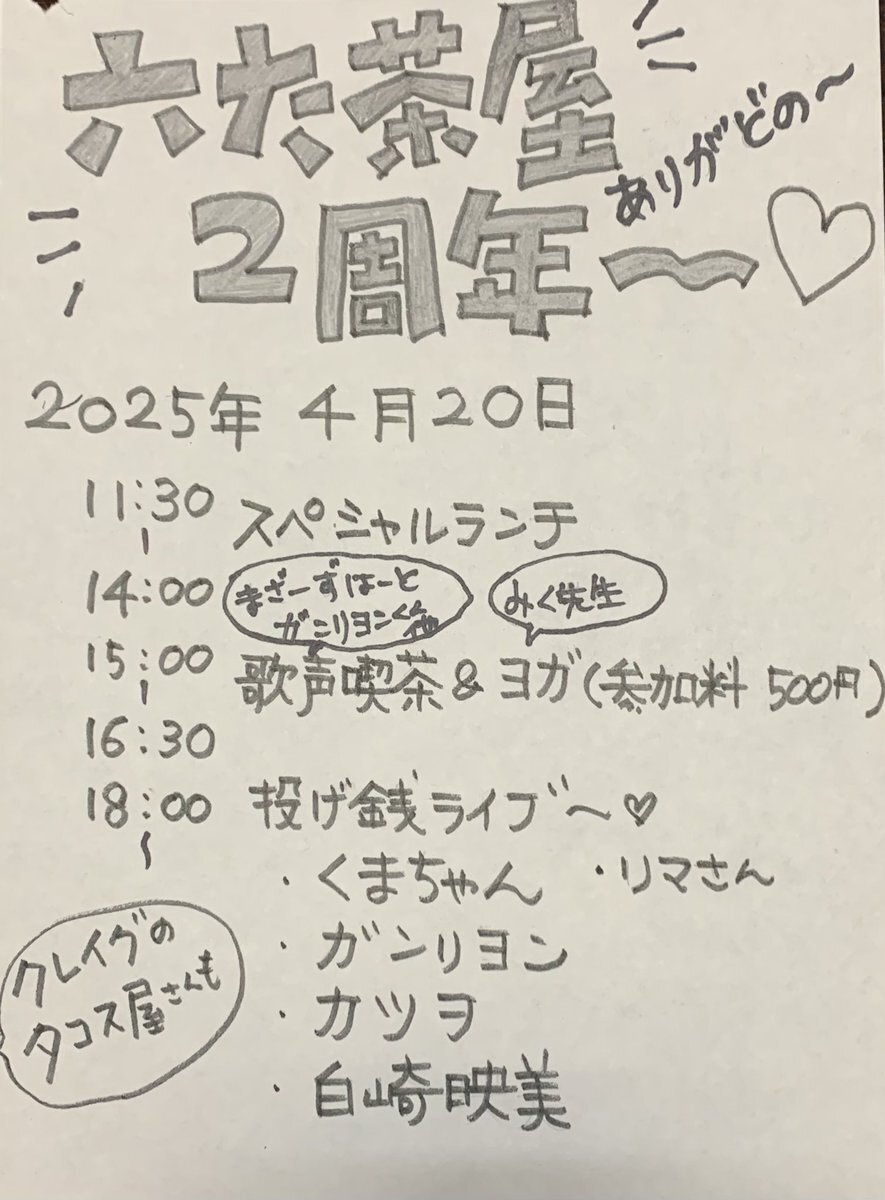 六太茶屋
ありがどの〜
2周年〜♡
2025年 4月20日
11:30
〜
14:00
スペシャルランチ
まざーずはーと
ガンリヨンくん他
みく先生
15:00
〜
16:30
歌声喫茶&ヨガ(参加料 500円)
18:00
〜
投げ銭ライブ〜♡
・くまちゃん ・リマさん
・ガンリヨン
・カツヲ
・白崎映美
クレイグの
タコス屋さんも